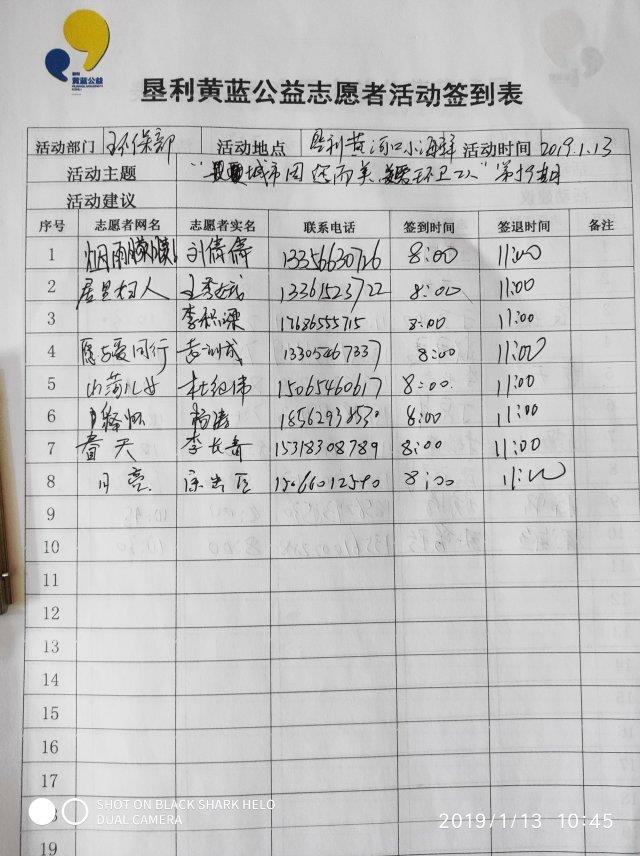 黄蓝公益
垦利黄蓝公益志愿者活动签到表
活动部门 环保部 活动地点 垦利黄河口小海鲜 活动时间 2019.1.13
活动主题 城市因 而美 环卫工人" 第19期
活动建议
序号 志愿者网名 志愿者实名 联系电话 签到时间 签退时间 备注
1 烟雨朦胧 刘倩倩 13356630726 8:00 11:00
2 13361523722 8:00 11:00
3 17686555715 8:00 11:00
4 愿与爱同行 13305467337 8:00 11:00
5 杜纪伟 15065460617 8:00 11:00
6 杨涛 18562938530 8:00 11:00
7 春天 李长青 15318308789 8:00 11:00
8 月亮 8:00 11:00
9
10
11
12
13
14
15
16
17
SHOT ON BLACK SHARK HELO
DUAL CAMERA
2019/1/13 10:45
19